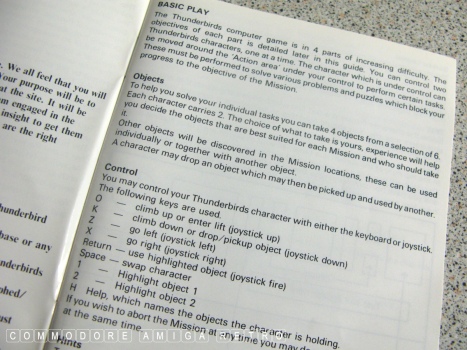 BASIC PLAY
The Thunderbirds computer game is in 4 parts of increasing difficulty. The
objectives of each part is detailed later in this guide. You can control two
Thunderbirds characters, one at a time. The character which is under control can
be moved around the 'Action area' under your control to perform certain tasks.
These must be performed to solve various problems and puzzles which block your
progress to the objective of the Mission.
Objects
To help you solve your individual tasks you can take 4 objects from a selection of 6.
Each character carries 2. The choice of what to take is yours, experience will help
you decide the objects that are best suited for each Mission and who should take
it.
Other objects will be discovered in the Mission locations, these can be used
individually or together with another object.
A character may drop an object which may then be picked up and used by another.
Control
You may control your Thunderbirds character with either the keyboard or joystick.
The following keys are used.
O — climb up or enter lift (joystick up)
K — climb down or drop/pickup object (joystick down)
Z — go left (joystick left)
X — go right (joystick right)
Return — use highlighted object (joystick fire)
Space — swap character
1 — Highlight object 1
2 — Highlight object 2
H Help, which names the objects the character is holding.
If you wish to abort the Mission at any time you may do
at the same time
Hints
. We all feel that you will
Your purpose will be to
at the site. It will be
em engaged in the
insight to get them
are the right
hunderbird
base or any
nderbirds
phed/
ust
COMMODORE AMIGA RETRO